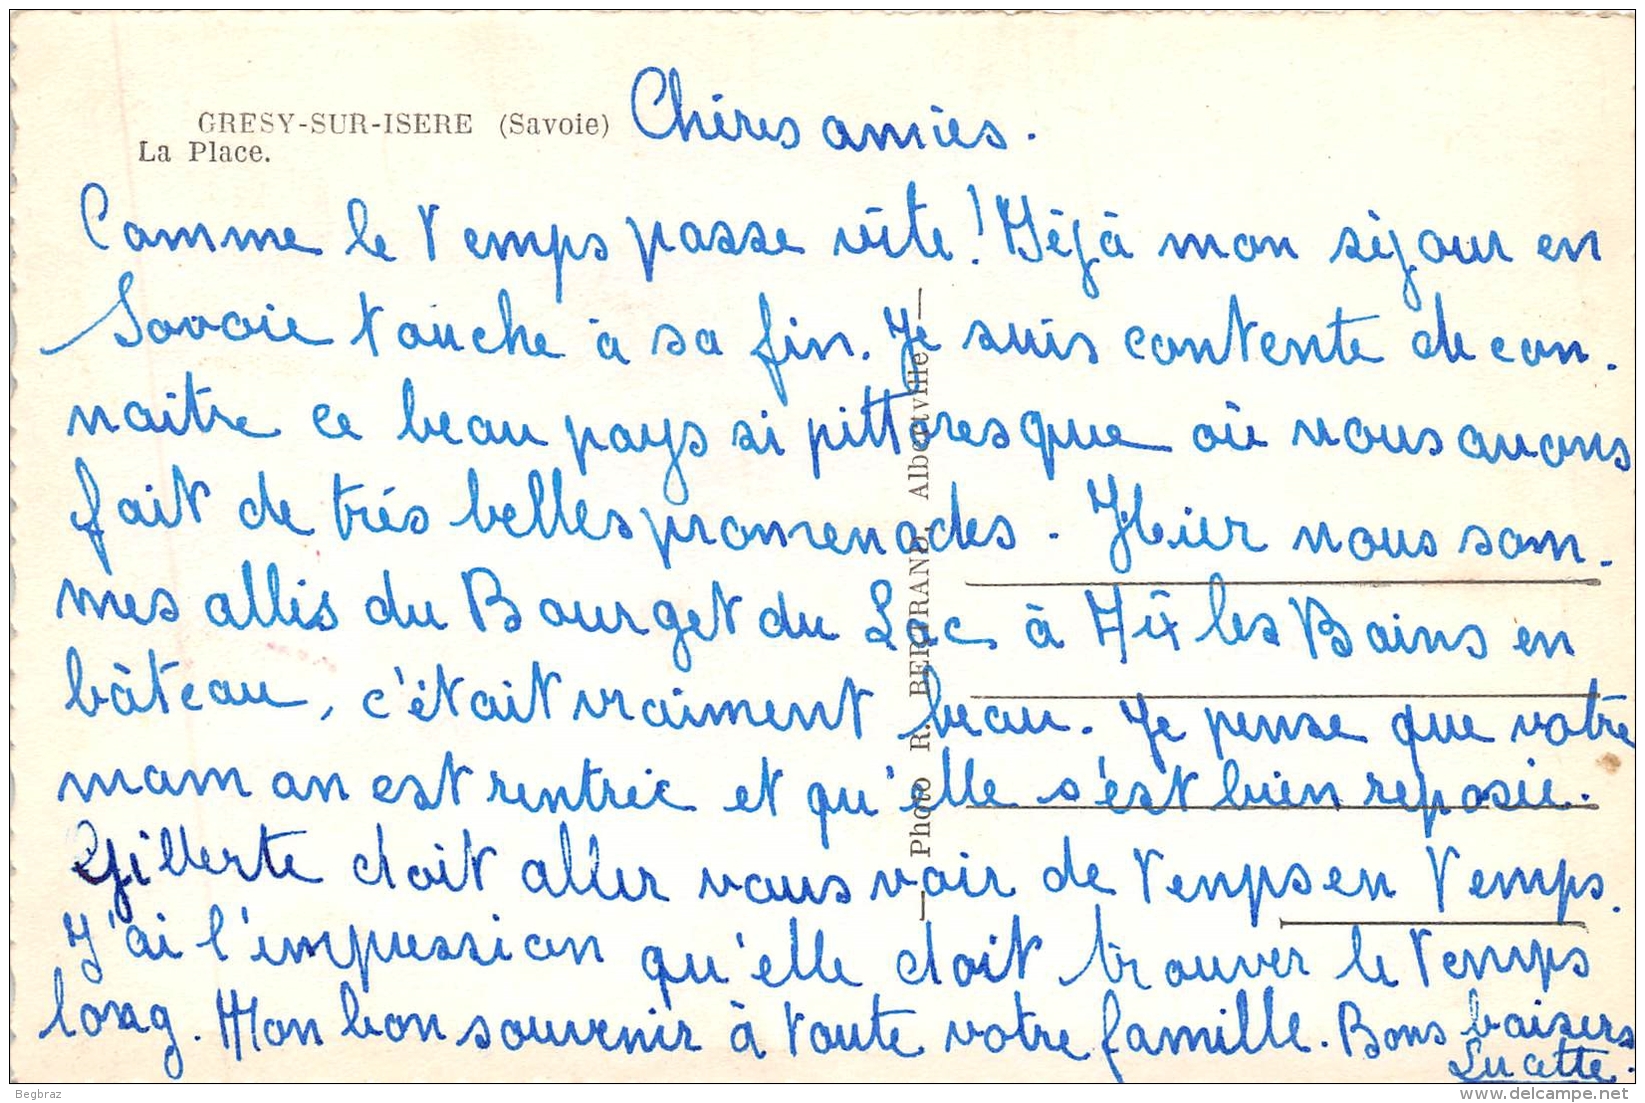 GRESY-SUR-ISERE (Savoie)
La Place.
Chéres amies.
Comme le temps passe vite! Déjà mon séjour en
Savoie touche à sa fin. Je suis contente de con-
naitre ce beau pays si pittoresque où nous avons
fait de trés belles promenades. Hier nous som-
mes allés du Bourget du Lac à Aix les Bains en
bâteau, c'était vraiment beau. Je pense que votre
maman est rentrée et qu'elle s'est bien reposée.
Gilberte doit aller vous voir de temps en temps.
J'ai l'impression qu'elle doit trouver le temps
long. Mon bon souvenir à toute votre famille. Bons baisers
Lucette.
Photo R. BERTRAND, Albertville
Begbraz
www.delcampe.net